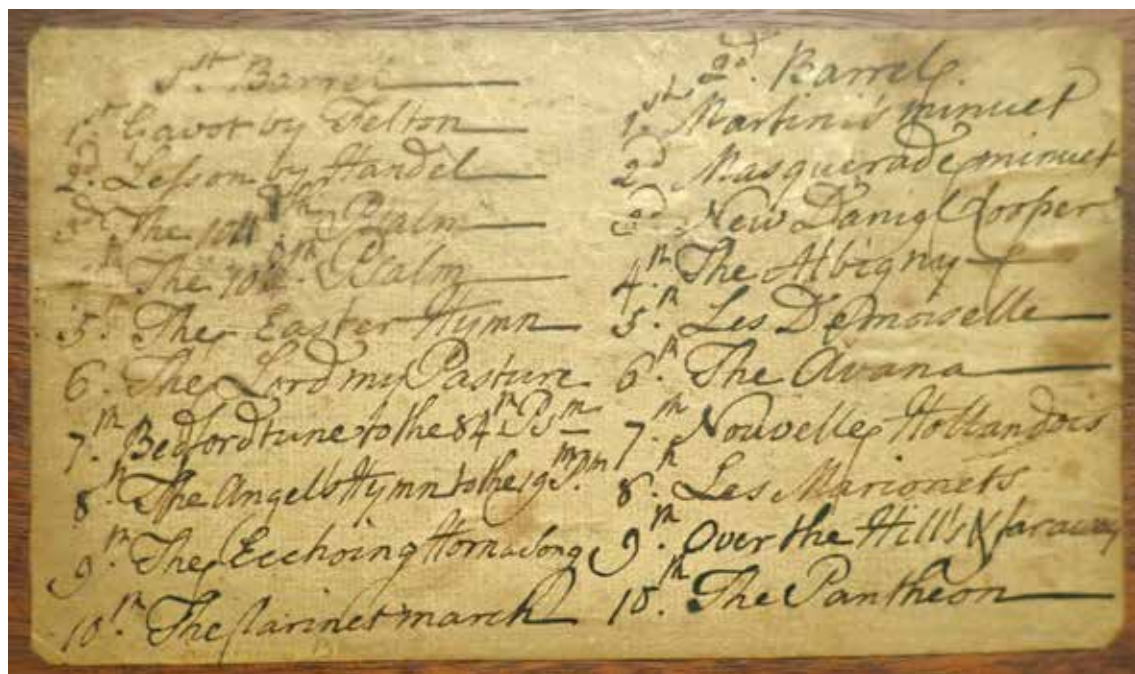 1st Barrel
1st Gavot by Felton
2d. Lesson by Handel
3d The 104th Psalm
th The 10 th. Psalm
5th. The Easter Hymn
6. The Lord my Pasture
7th. Bedford tune to the 84th Psm
8th. The Angells Hymn to the 19 Psm
9th. The Ecchoing Horn a Song
10th. The Clarinet march
2d. Barrel.
1st Martini's minuet
2d Masquerade minuet
3d New Daniel Cooper
4th. The Albigny
5th. Les Demoiselle
6th. The Avana
7th. Nouvelle Hollandois
8th. Les Marionets
9th. Over the Hill's & far away
10th. The Pantheon